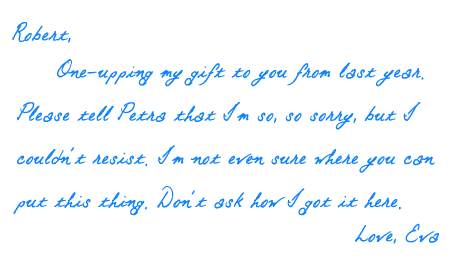 Robert,
One-upping my gift to you from last year.
Please tell Petra that I'm so, so sorry, but I
couldn't resist. I'm not even sure where you can
put this thing. Don't ask how I got it here.
Love, Eva